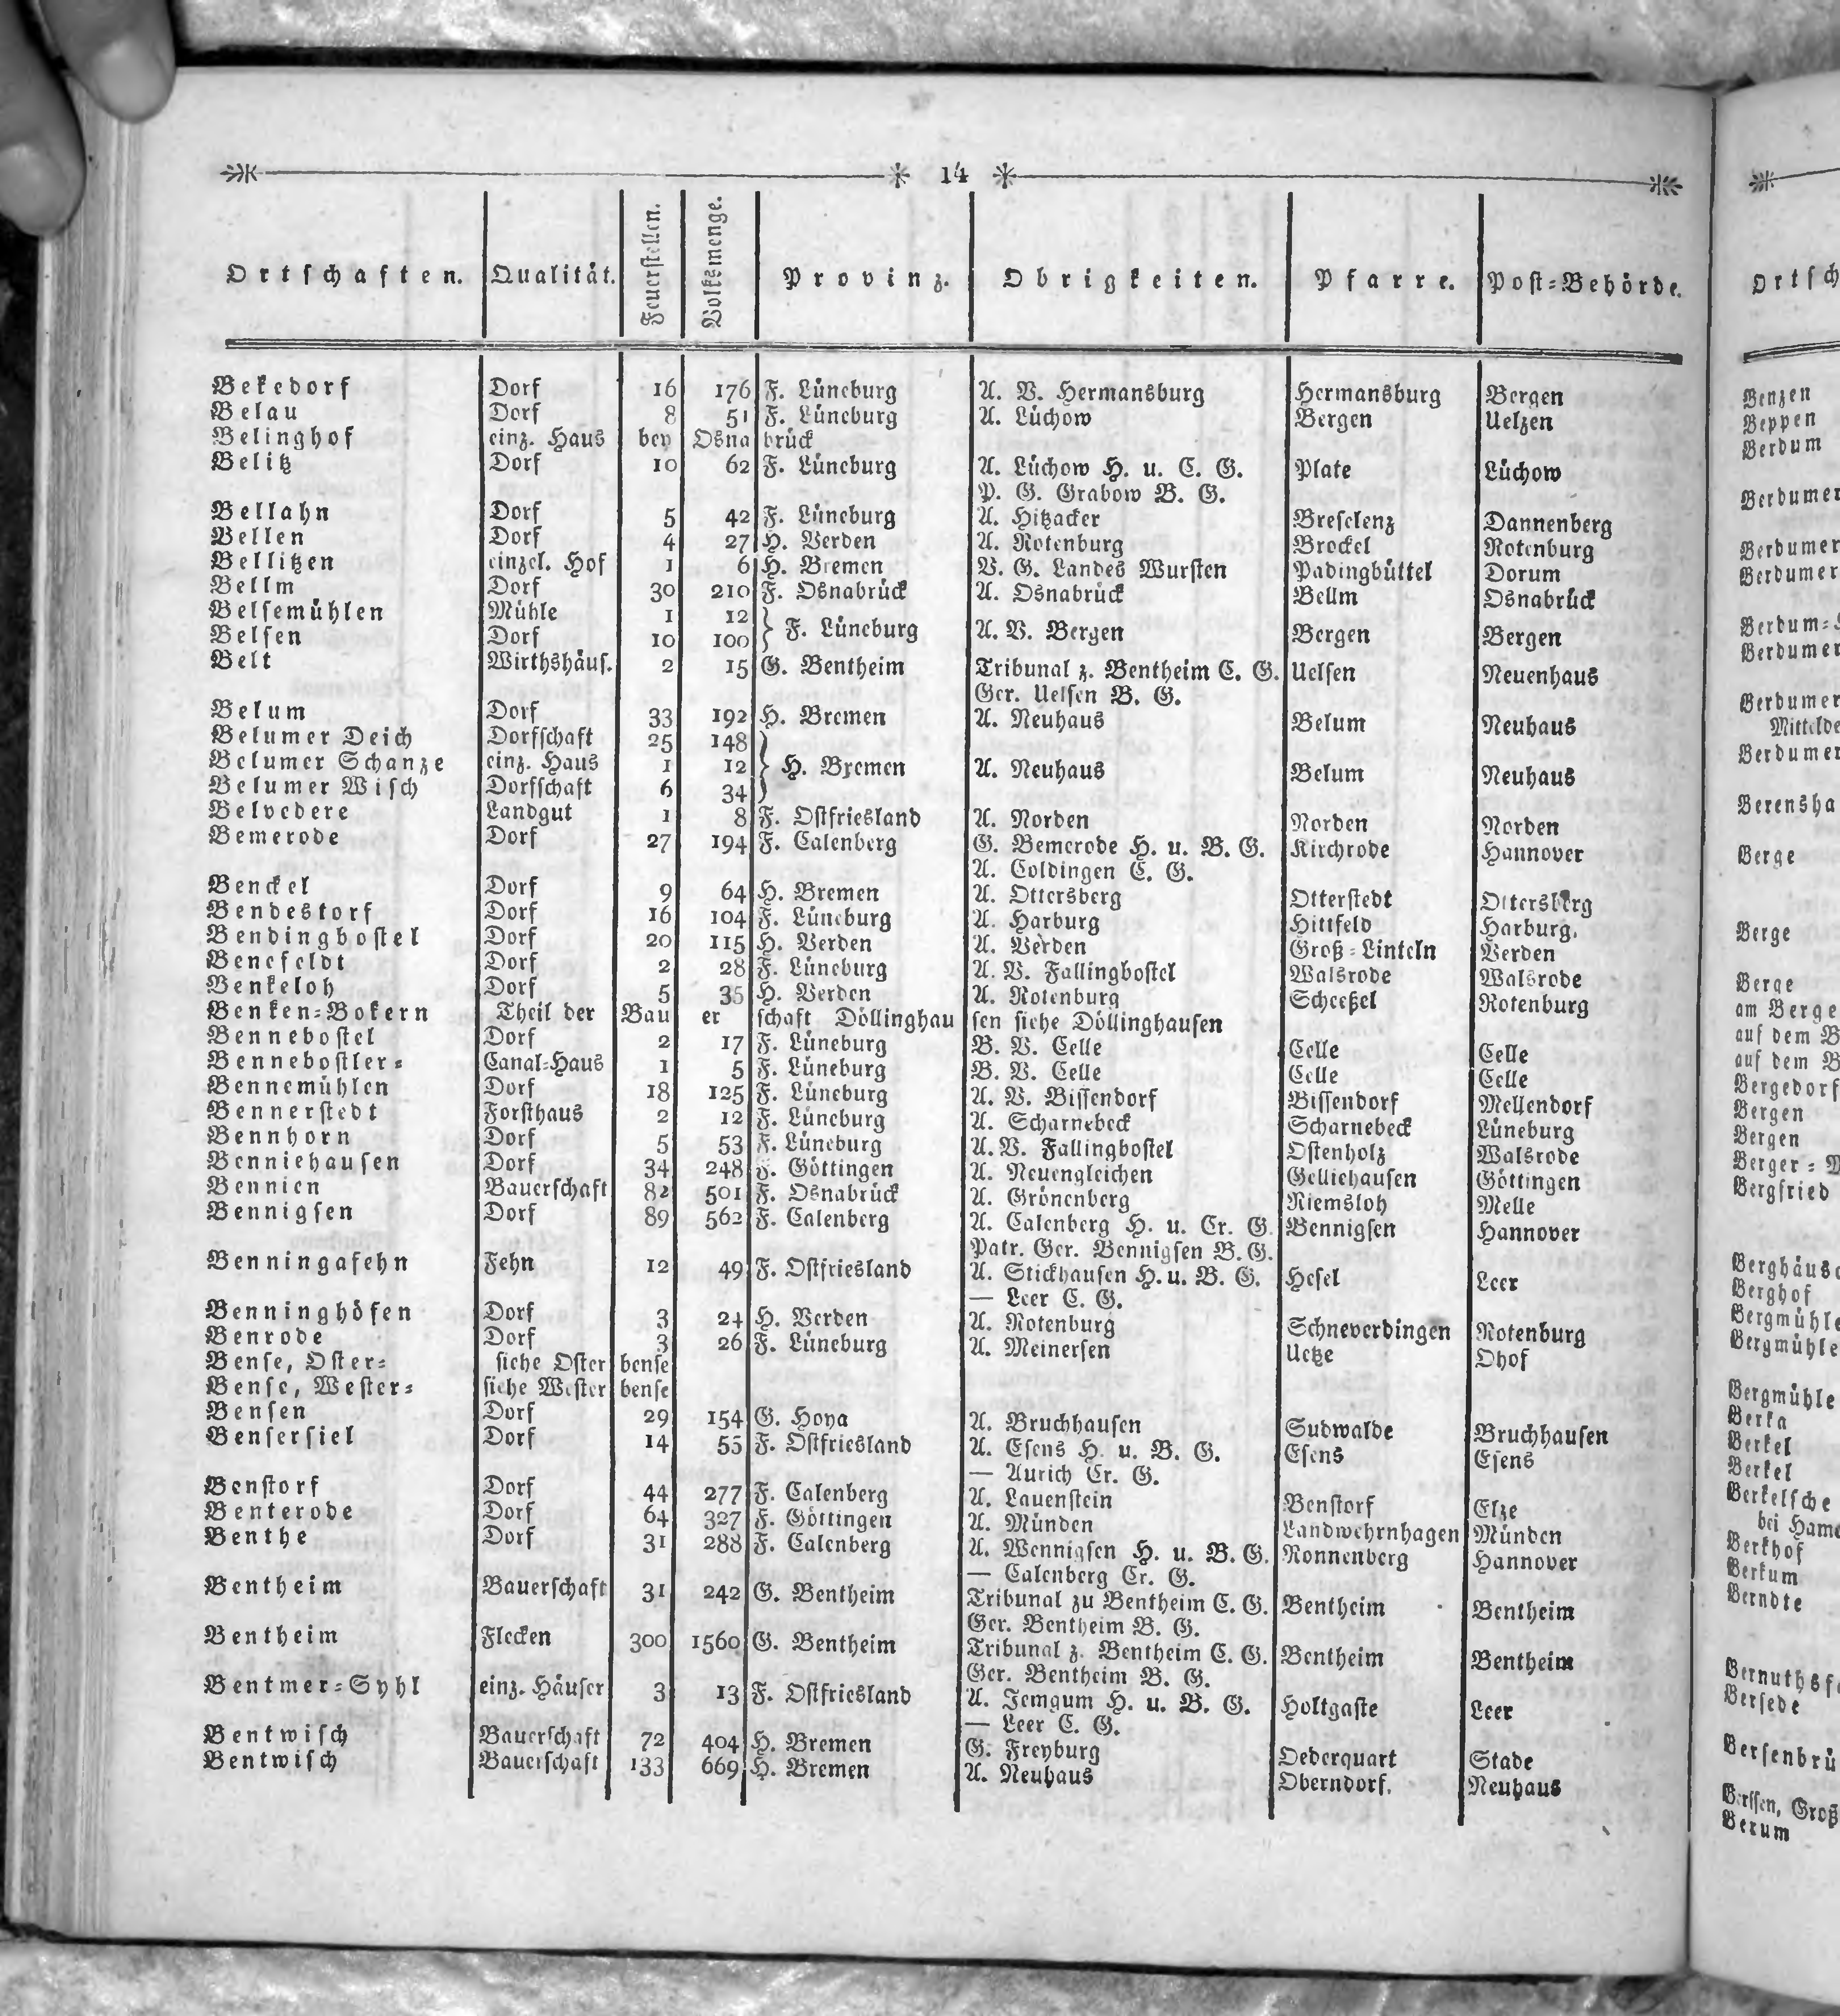 14
Ortschaften. Qualität. Feuerstellen. Volksmenge. Provinz. Obrigkeiten. Pfarre. Post=Behörde.
Bekedorf Dorf 16 176 F. Lüneburg A. V. Hermansburg Hermansburg Bergen
Belau Dorf 8 51 F. Lüneburg A. Lüchow Bergen Uelzen
Belinghof einz. Haus bey Osna brück
Belitz Dorf 10 62 F. Lüneburg A. Lüchow H. u. C. G. Plate Lüchow
P. G. Grabow B. G.
Bellahn Dorf 5 42 F. Lüneburg A. Hitzacker Breselenz Dannenberg
Bellen Dorf 4 27 H. Verden A. Rotenburg Brockel Rotenburg
Bellitzen einzel. Hof 1 6 H. Bremen V. G. Landes Wursten Padingbüttel Dorum
Bellm Dorf 30 210 F. Osnabrück A. Osnabrück Bellm Osnabrück
Belsemühlen Mühle 1 12
Belsen Dorf 10 100 } F. Lüneburg A. V. Bergen Bergen Bergen
Belt Wirthshäus. 2 15 G. Bentheim Tribunal z. Bentheim C. G. Uelsen Neuenhaus
Ger. Uelsen B. G.
Belum Dorf 33 192 H. Bremen A. Neuhaus Belum Neuhaus
Belumer Deich Dorfschaft 25 148
Belumer Schanze einz. Haus 1 12 } H. Bremen A. Neuhaus Belum Neuhaus
Belumer Wisch Dorfschaft 6 34
Belvedere Landgut 1 8 F. Ostfriesland A. Norden Norden Norden
Bemerode Dorf 27 194 F. Calenberg G. Bemerode H. u. B. G. Kirchrode Hannover
A. Coldingen C. G.
Benckel Dorf 9 64 H. Bremen A. Ottersberg Otterstedt Ottersberg
Bendestorf Dorf 16 104 F. Lüneburg A. Harburg Hittfeld Harburg.
Bendingbostel Dorf 20 115 H. Verden A. Verden Groß=Linteln Verden
Benefeldt Dorf 2 28 F. Lüneburg A. V. Fallingbostel Walsrode Walsrode
Benkeloh Dorf 5 35 H. Verden A. Rotenburg Scheeßel Rotenburg
Benken=Bokern Theil der Bau er schaft Döllinghau sen siehe Döllinghausen
Bennebostel Dorf 2 17 F. Lüneburg B. V. Celle Celle Celle
Bennebostler= Canal=Haus 1 5 F. Lüneburg B. V. Celle Celle Celle
Bennemühlen Dorf 18 125 F. Lüneburg A. V. Bissendorf Bissendorf Mellendorf
Bennerstedt Forsthaus 2 12 F. Lüneburg A. Scharnebeck Scharnebeck Lüneburg
Bennhorn Dorf 5 53 F. Lüneburg A. V. Fallingbostel Ostenholz Walsrode
Benniehausen Dorf 34 248 F. Göttingen A. Neuengleichen Gelliehausen Göttingen
Bennien Bauerschaft 82 501 F. Osnabrück A. Grönenberg Riemsloh Melle
Bennigsen Dorf 89 562 F. Calenberg A. Calenberg H. u. Cr. G. Bennigsen Hannover
Patr. Ger. Bennigsen B. G.
Benningafehn Fehn 12 49 F. Ostfriesland A. Stickhausen H. u. B. G. Hesel Leer
— Leer C. G.
Benninghöfen Dorf 3 24 H. Verden A. Rotenburg Schneverdingen Rotenburg
Benrode Dorf 3 26 F. Lüneburg A. Meinersen Uetze Ohof
Bense, Oster= siehe Oster bense
Bense, Wester= siehe Wester bense
Bensen Dorf 29 154 G. Hoya A. Bruchhausen Sudwalde Bruchhausen
Bensersiel Dorf 14 55 F. Ostfriesland A. Esens H. u. B. G. Esens Esens
— Aurich Cr. G.
Benstorf Dorf 44 277 F. Calenberg A. Lauenstein Benstorf Elze
Benterode Dorf 64 327 F. Göttingen A. Münden Landwehrnhagen Münden
Benthe Dorf 31 288 F. Calenberg A. Wennigsen H. u. B. G. Ronnenberg Hannover
— Calenberg Cr. G.
Bentheim Bauerschaft 31 242 G. Bentheim Tribunal zu Bentheim C. G. Bentheim Bentheim
Ger. Bentheim B. G.
Bentheim Flecken 300 1560 G. Bentheim Tribunal z. Bentheim C. G. Bentheim Bentheim
Ger. Bentheim B. G.
Bentmer=Syhl einz. Häuser 3 13 F. Ostfriesland A. Jemgum H. u. B. G. Holtgaste Leer
— Leer C. G.
Bentwisch Bauerschaft 72 404 H. Bremen G. Freyburg Oederquart Stade
Bentwisch Bauerschaft 133 669 H. Bremen A. Neuhaus Oberndorf. Neuhaus
Ortsch
Benzen
Beppen
Berdum
Berdumer
Berdumer
Berdumer
Berdum=
Berdumer
Berdumer
Mittelde
Berdumer
Berensha
Berge
Berge
Berge
am Berge
auf dem B
auf dem B
Bergedorf
Bergen
Bergen
Berger=
Bergfried
Berghäus
Berghof
Bergmühle
Bergmühle
Bergmühle
Berka
Berkel
Berkel
Berkelsche
bei Hame
Berkhof
Berkum
Berndte
Bernuthsf
Bersede
Bersenbrü
Berssen, Groß
Berum